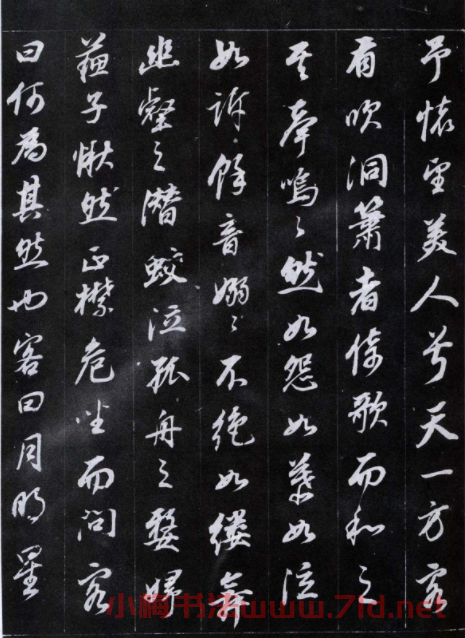 予懷望美人兮天一方客
有吹洞簫者倚歌而和之
其聲嗚〻然如怨如慕如泣
如訴餘音嫋〻不絕如縷舞
幽壑之潛蛟泣孤舟之嫠婦
蘇子愀然正襟危坐而問客
曰何為其然也客曰月明星
小梅书法www.7ld.net